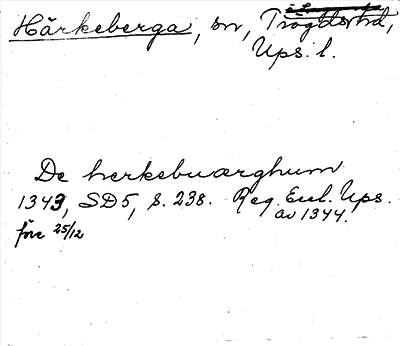 Härkeberga, sn, Trögds hd,
Ups. l.
De herkebuærghum
1343, SD5, s. 238. Reg. Eccl. Ups.
av 1344.
före 25/12